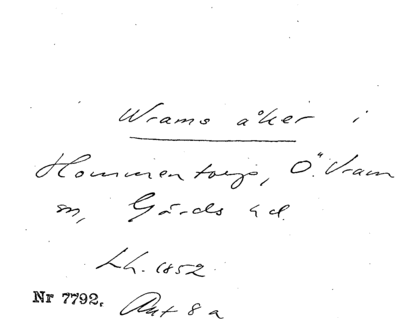 Wrams åker i
Hommentorp, Ö. Vram
sn, Gärds hd.
Lh. 1852
Nr 7792. Akt 8 a